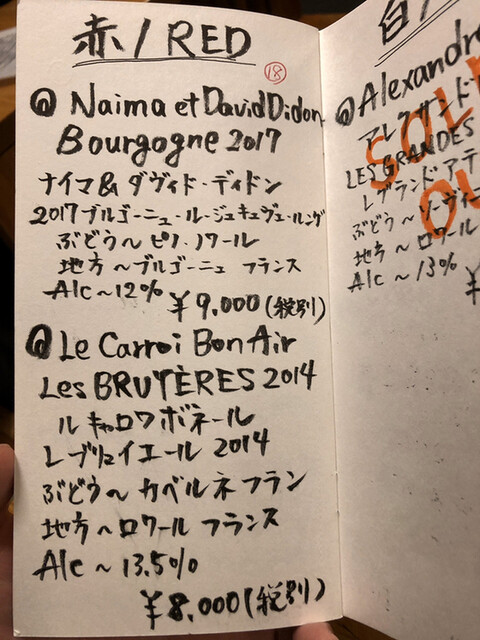 赤/RED
⑱
Naima et David Didon
Bourgogne 2017
ナイマ&ダヴィド・ディドン
2017ブルゴーニュ・ル・ジュキュヴェ・ルング
ぶどう~ピノ・ノワール
地方~ブルゴーニュ フランス
Alc~12%
¥9,000(税別)
Le Carroi Bon Air
Les BRUYÈRES 2014
ル キャロワ ボネール
レ ブリュイエール 2014
ぶどう~カベルネフラン
地方~ロワール フランス
Alc~13.5%
¥8,000(税別)
白/
Alexandre
アレクサンド
LES GRANDES
レグランド・アテ
ぶどう~ソーヴィニ
地方~ロワール
Alc~13%
¥
SOL
OU